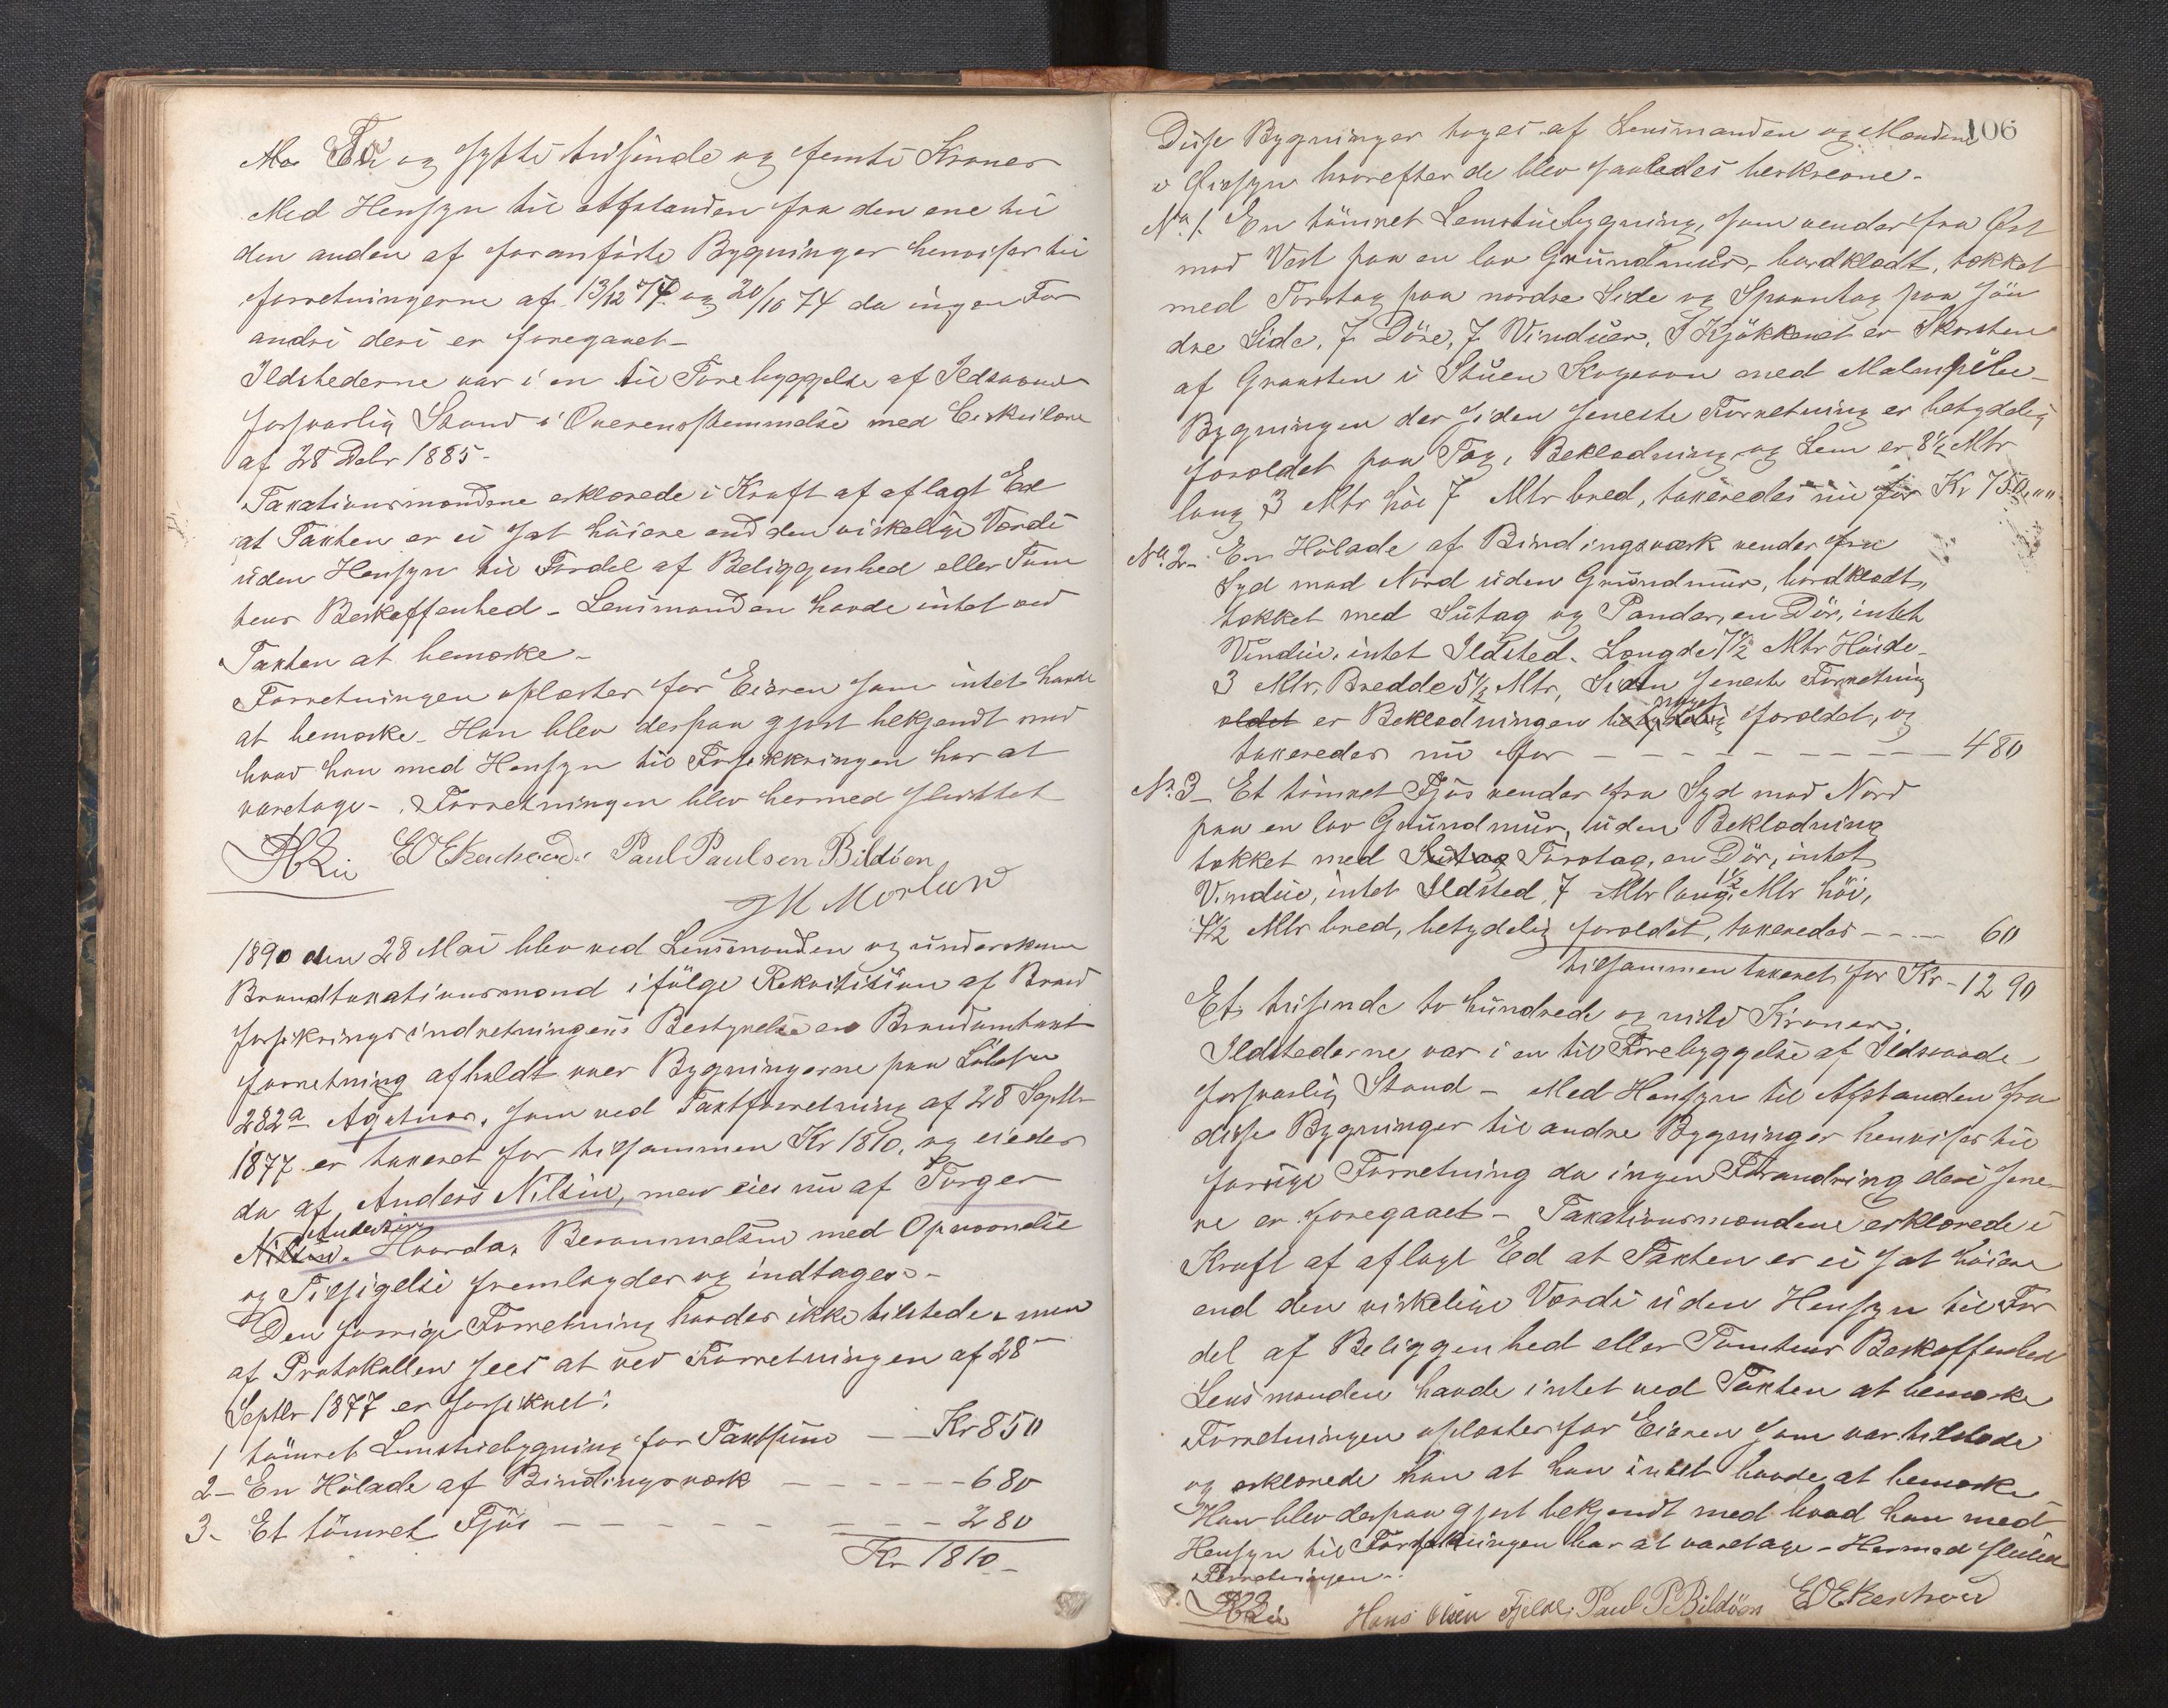 En og sytti tusinde og femti Kroner
Med Hensyn til Afstanden fra den ene til
den anden af foranförte Bygninger henvises til
forretningerne af 13/12 74 og 20/10 74 da ingen For
andri deri er foregaaet -
Ildstederne var i en til Forebyggelse af Ildsvaade
forsvarlig Stand i Overensstemmelse med Cirkulære
af 28 Debr 1885 -
Taxationsmændene erklærede i Kraft af aflagt Ed
at Taxten er ei sat höiere end den virkelige Værdi
uden Hensyn til Fordel af Beliggenhed eller Tom
tens Beskaffenhed - Lensmanden havde intet ved
Taxten at bemærke -
Forretningen oplæstes for Eieren som intet havde
at bemærke - Han blev derpaa gjort bekjendt med
hvad han med Hensyn til Forsikkringen har at
varetage - Forretningen blev hermed sluttet
Paul Paulsen Bildöen
1890 den 28 Mai blev ved Lensmanden og underskrevne
Brandtaxationsmænd ifölge Rekvisition af Brand
forsikringsindretningens Bestyrelse en Brandomtaxt
forretning afholdt over Bygningerne paa Löbsno
282a Agotnes, som ved Taxtforretning af 28 Septbr
1877 er taxeret for tilsammen Kr 1810, og eiedes
da af Anders Nilsen, men eies nu af Torger
Andersen
Nilsen. Hvorda, Berammelsen med Opnævnelse
og Tilsigelse fremlagdes og indtages -
Den forrige Forretning havdes ikke tilstede, men
af Protokollen sees at ved Forretningen af 28
Septbr 1877 er forsikret:
1 tömret Lemstuebygning for Taxtsum — Kr 850
2 - En Hölade af Bindingsværk — — — — — 680
3 - Et tömret Fjös — — — — — — — — 280
Kr 1810 -
106
Disse Bygninger toges af Lensmanden og Mændene
i Öiesyn hvorefter de blev saaledes beskrevne -
No. 1. En tömret Lemstuebygning, som vender fra Öst
mod Vest paa en lav Grundmur, bordklædt, tækket
med Torvtag paa nordre Side og Spaantag paa sön
dre Side, 7 Döre, 7 Vinduer, I Kjökkenet er Skorsten
af Graasten i Stuen Kogeovn med Malmpibe -
Bygningen der siden seneste Forretning er betydelig
foroldet paa Tag, Beklædning og Lem er 8½ Mtr
lang 3 Mtr höi 7 Mtr bred, taxeredes nu for Kr 750,""
No. 2 - En Hölade af Bindingsværk vender fra
Syd mod Nord uden Grundmur, bordklædt,
tækket med Sutag og Pander, en Dör, intet
Vindue, intet Ildsted. Længde 7½ Mtr Höide
3 Mtr, Bredde 5½ Mtr, Siden seneste Forretning
noget
oldet er Beklædningen betydelig foroldet, og
taxeredes nu for — — — — — — — — — 480
No. 3 - Et tömret Fjös vender fra Syd mod Nord
paa en lav Grundmur, uden Beklædning
tækket med Sutag Torvtag, en Dör, intet
Vindue, intet Ildsted, 7 Mtr lang, 1½ Mtr höi,
4½ Mtr bred, betydelig foroldet, taxeredes — — — 60
tilsammen taxeret for Kr - 1290
Et tusinde to hundrede og nitti Kroner.
Ildstederne var i en til Forebyggelse af Ildsvaade
forsvarlig Stand - Med Hensyn til Afstanden fra
disse Bygninger til andre Bygninger henvises til
forrige Forretning da ingen Forandring deri sene
re er foregaaet - Taxationsmændene erklærede i
Kraft af aflagt Ed at Taxten er ei sat höiere
end den virkelige Værdi uden Hensyn til For
del af Beliggenhed eller Tomtens Beskaffenhed
Lensmanden havde intet ved Taxten at bemærke
Forretningen oplæstes for Eieren som var tilstede
og erklærede han at han intet havde at bemærke
Han blev derpaa gjort bekjendt med hvad han med
Hensyn til Forsikringen har at varetage - Hermed sluttet
Forretningen.
Hans Olsen Fjeldt. Paul P Bildöen